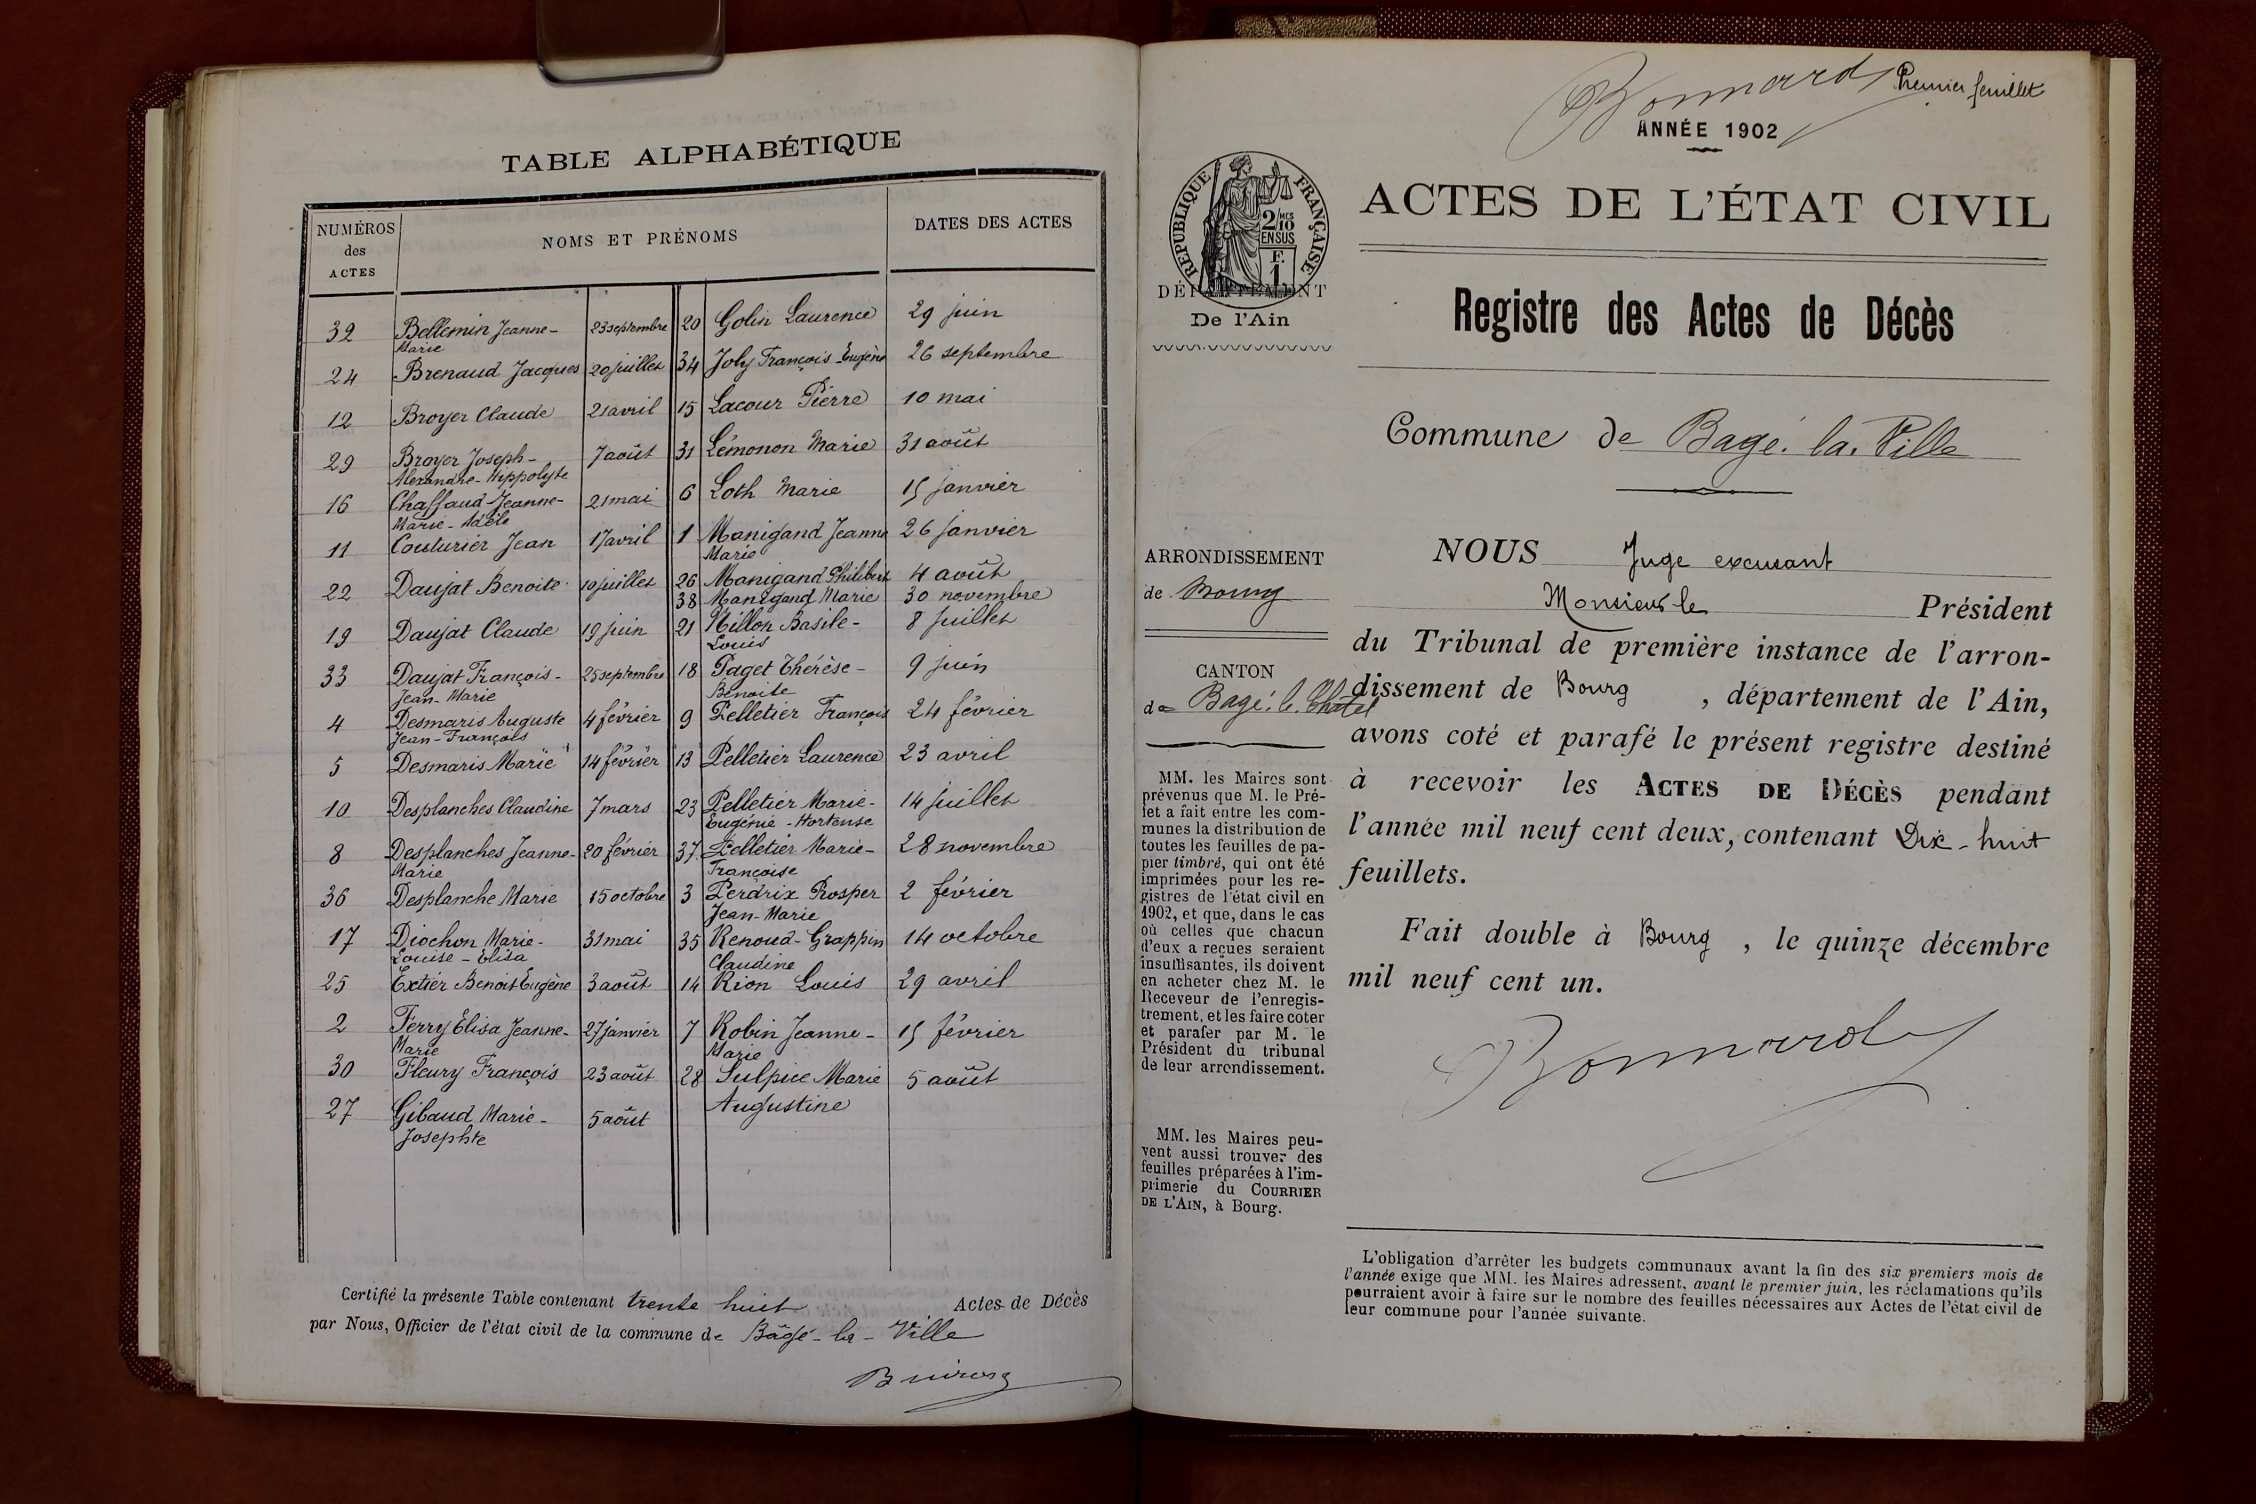 TABLE ALPHABÉTIQUE
NUMÉROS des ACTES
NOMS ET PRÉNOMS
DATES DES ACTES
32 Bellemin Jeanne-Marie 23 septembre
24 Brenaud Jacques 20 juillet
12 Broyer Claude 21 avril
29 Broyer Joseph-Alexandre-Hippolyte 7 août
16 Chaffaud Jeanne-Marie-Adèle 21 mai
11 Couturier Jean 17 avril
22 Daujat Benoite 10 juillet
19 Daujat Claude 19 juin
33 Daujat François-Jean-Marie 25 septembre
4 Desmaris Auguste Jean-François 4 février
5 Desmaris Marie 14 février
10 Desplanches Claudine 7 mars
8 Desplanches Jeanne-Marie 20 février
36 Desplanche Marie 15 octobre
17 Diochon Marie-Louise-Elisa 31 mai
25 Extier Benoit Eugène 3 août
2 Ferry Elisa Jeanne-Marie 27 janvier
30 Fleury François 23 août
27 Gibaud Marie-Josephte 5 août
20 Golin Laurence 29 juin
34 Joly François-Eugène 26 septembre
15 Lacour Pierre 10 mai
31 Lémonon Marie 31 août
6 Loth Marie 15 janvier
1 Manigand Jeanne Marie 26 janvier
26 Manigand Philibert 4 août
38 Manigand Marie 30 novembre
21 Millon Basile-Louis 8 juillet
18 Paget Thérèse-Benoite 9 juin
9 Pelletier François 24 février
13 Pelletier Laurence 23 avril
23 Pelletier Marie-Eugénie-Hortense 14 juillet
37 Pelletier Marie-Françoise 28 novembre
3 Perdrix Prosper Jean-Marie 2 février
35 Renoud-Grappin Claudine 14 octobre
14 Rion Louis 29 avril
7 Robin Jeanne-Marie 15 février
28 Sulpice Marie Augustine 5 août
Certifié la présente Table contenant trente huit Actes de Décès
par Nous, Officier de l'état civil de la commune de Bâgé-la-Ville
Bonnard Premier feuillet
ANNÉE 1902
RÉPUBLIQUE FRANÇAISE
2/10 MES
EN SUS
F. 1
DÉPARTEMENT
De l'Ain
ACTES DE L'ÉTAT CIVIL
Registre des Actes de Décès
Commune de Bagé.la.Ville
ARRONDISSEMENT
de Bourg
CANTON
de Bagé.le.Chatel
MM. les Maires sont
prévenus que M. le Pré-
fet a fait entre les com-
munes la distribution de
toutes les feuilles de pa-
pier timbré, qui ont été
imprimées pour les re-
gistres de l'état civil en
1902, et que, dans le cas
où celles que chacun
d'eux a reçues seraient
insuffisantes, ils doivent
en acheter chez M. le
Receveur de l'enregis-
trement, et les faire coter
et parafer par M. le
Président du tribunal
de leur arrondissement.
MM. les Maires peu-
vent aussi trouver des
feuilles préparées à l'im-
primerie du COURRIER
DE L'AIN, à Bourg.
NOUS Juge excusant
Monsieur le Président
du Tribunal de première instance de l'arron-
dissement de Bourg, département de l'Ain,
avons coté et parafé le présent registre destiné
à recevoir les ACTES DE DÉCÈS pendant
l'année mil neuf cent deux, contenant Dix-huit
feuillets.
Fait double à Bourg, le quinze décembre
mil neuf cent un.
Bonnard
L'obligation d'arrêter les budgets communaux avant la fin des six premiers mois de
l'année exige que MM. les Maires adressent, avant le premier juin, les réclamations qu'ils
pourraient avoir à faire sur le nombre des feuilles nécessaires aux Actes de l'état civil de
leur commune pour l'année suivante.